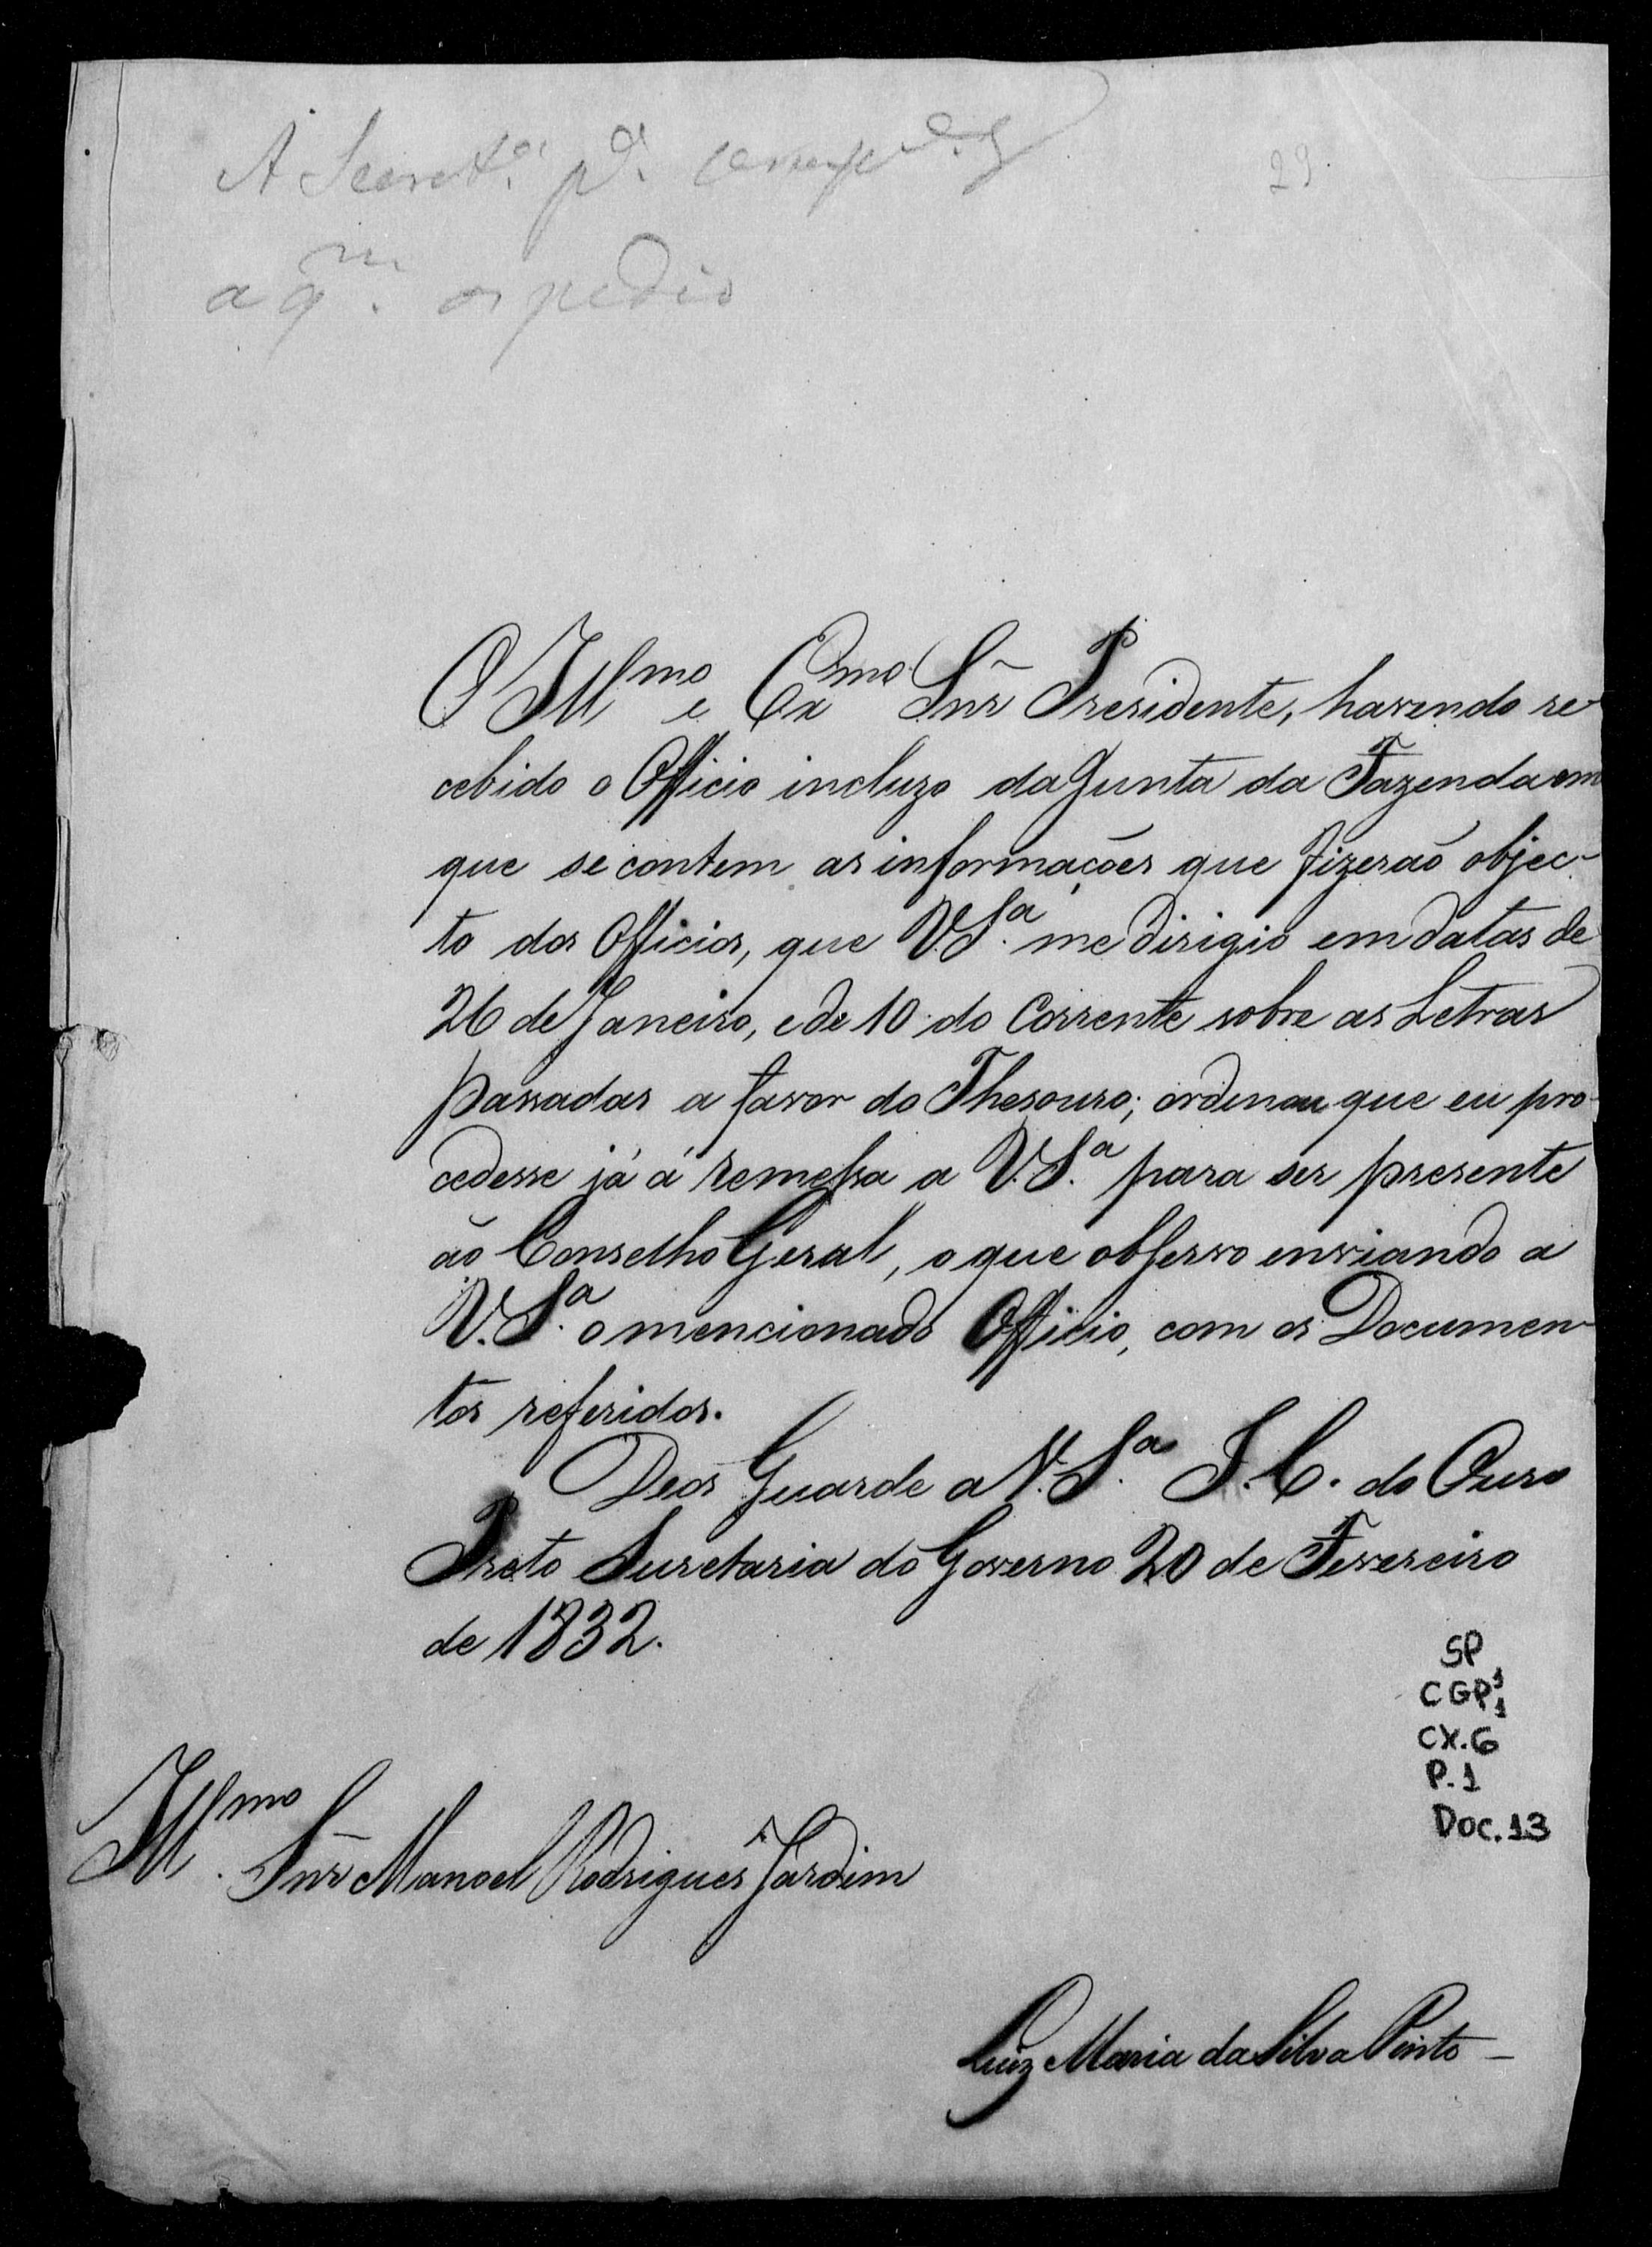 A Secret.ª p.ª
29
a q.m os pedio
O Ill.mo e Ex.mo Snr Presidente, havendo re-
cebido o Officio incluzo da Junta da Fazenda em
que se contem as informações que fizeraõ objec-
to dos Officios, que V.S.ª me dirigio em datas de
26 de Janeiro, e de 10 do Corrente sobre as Letras
passadas a favor do Thesouro; ordenou que eu pro-
cedesse já á remessa a V.S.ª para ser presente
ao Conselho Geral, o que observo enviando a
V.S.ª o mencionado Officio, com os Documen-
tos referidos.
Deos Guarde a V.S.ª I.C. do Ouro
Preto Secretaria do Governo 20 de Fevereiro
de 1832.
SP
CGP¹1
CX.6
P.1
Doc.13
Ill.mo Snr Manoel Rodrigues Jardim
Luiz Maria da Silva Pinto